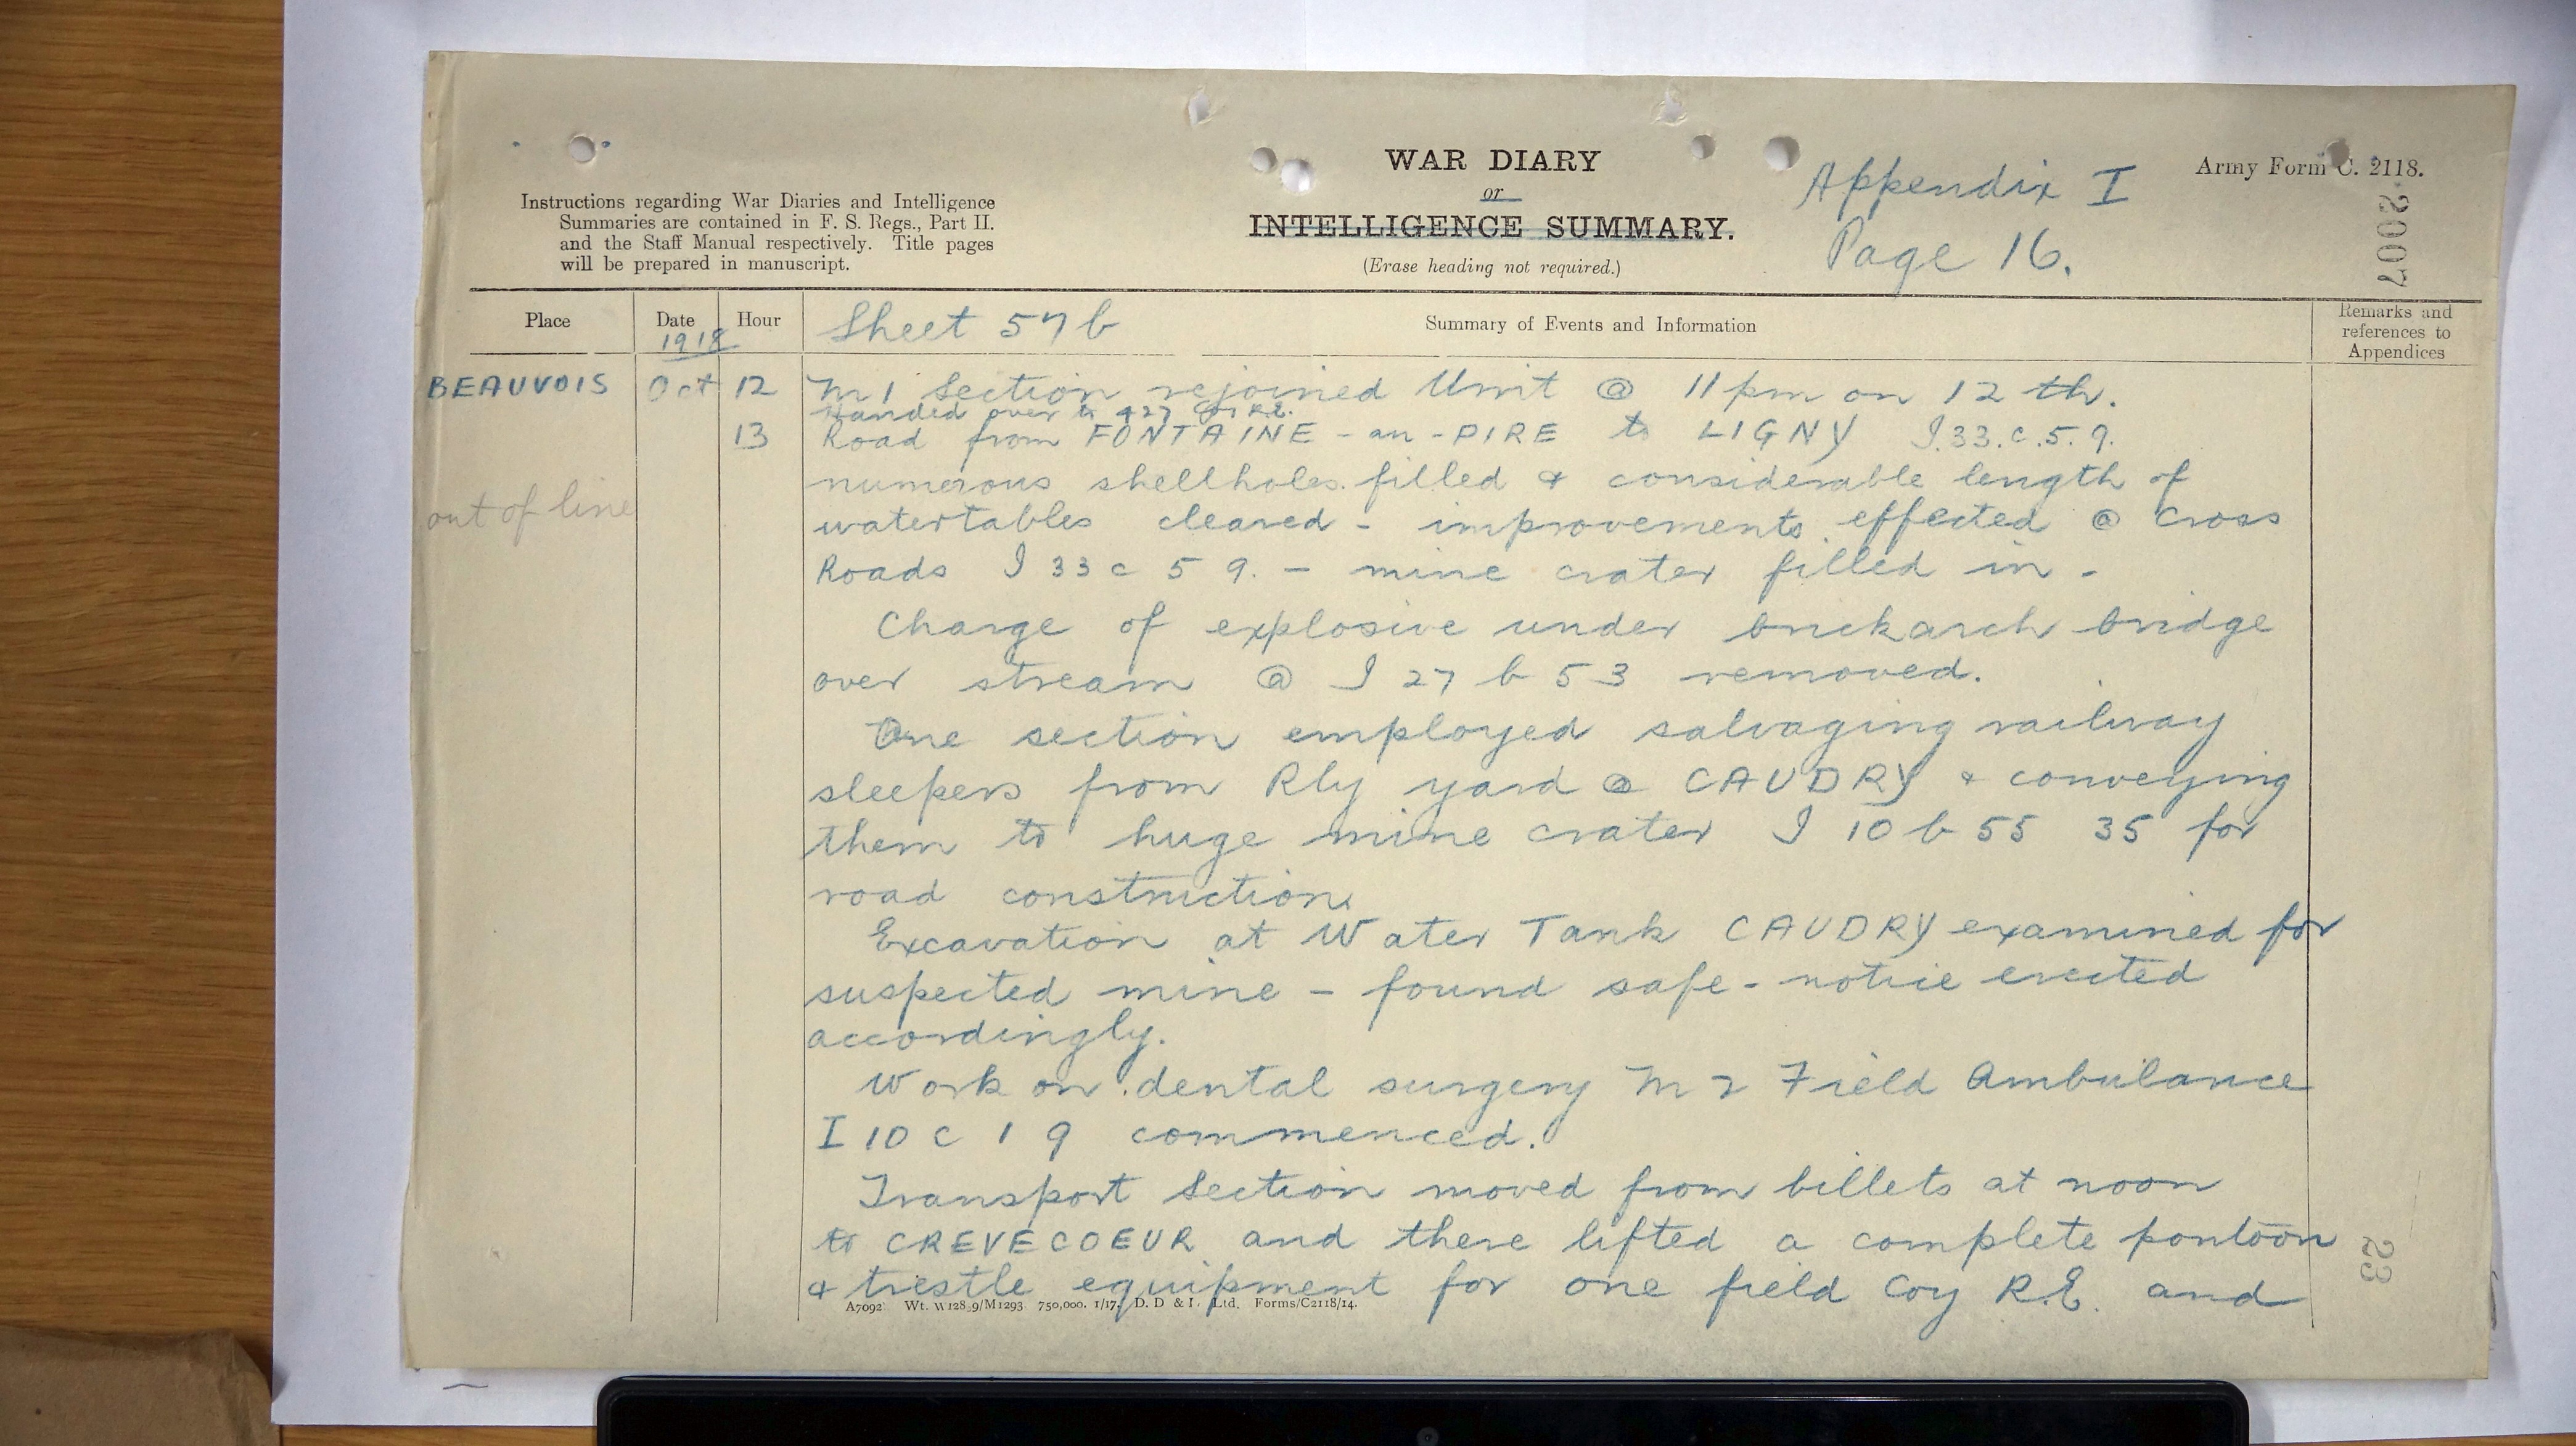 WAR DIARY
or
INTELLIGENCE SUMMARY.
(Erase heading not required.)
Instructions regarding War Diaries and Intelligence
Summaries are contained in F. S. Regs., Part II.
and the Staff Manual respectively. Title pages
will be prepared in manuscript.
Appendix I
Page 16.
Army Form C. 2118.
2007
Place
Date
1918
Hour
Sheet 57b
Summary of Events and Information
Remarks and
references to
Appendices
BEAUVOIS Oct 12 No 1 Section rejoined Unit @ 11 pm on 12 th.
Handed over to 427 Coy R.E.
13 Road from FONTAINE-au-PIRE to LIGNY I.33.c.5.9.
numerous shellholes filled & considerable length of
out of line
watertables cleared - improvements effected @ Cross
Roads I 33 c 5 9. - mine crater filled in -
Charge of explosive under brickarch bridge
over stream @ I 27 b 53 removed.
One section employed salvaging railway
sleepers from Rly yard @ CAUDRY & conveying
them to huge mine crater I 10 b 55 35 for
road construction
Excavation at Water Tank CAUDRY examined for
suspected mine - found safe - notice erected
accordingly.
Work on dental surgery No 2 Field Ambulance
I 10 C 1 9 commenced.
Transport Section moved from billets at noon
to CREVECOEUR and there lifted a complete pontoon
& trestle equipment for one field Coy R.E. and
23
A7092 Wt. W128.9/M1293 750,000. 1/17. D. D & L. Ltd. Forms/C2118/14.